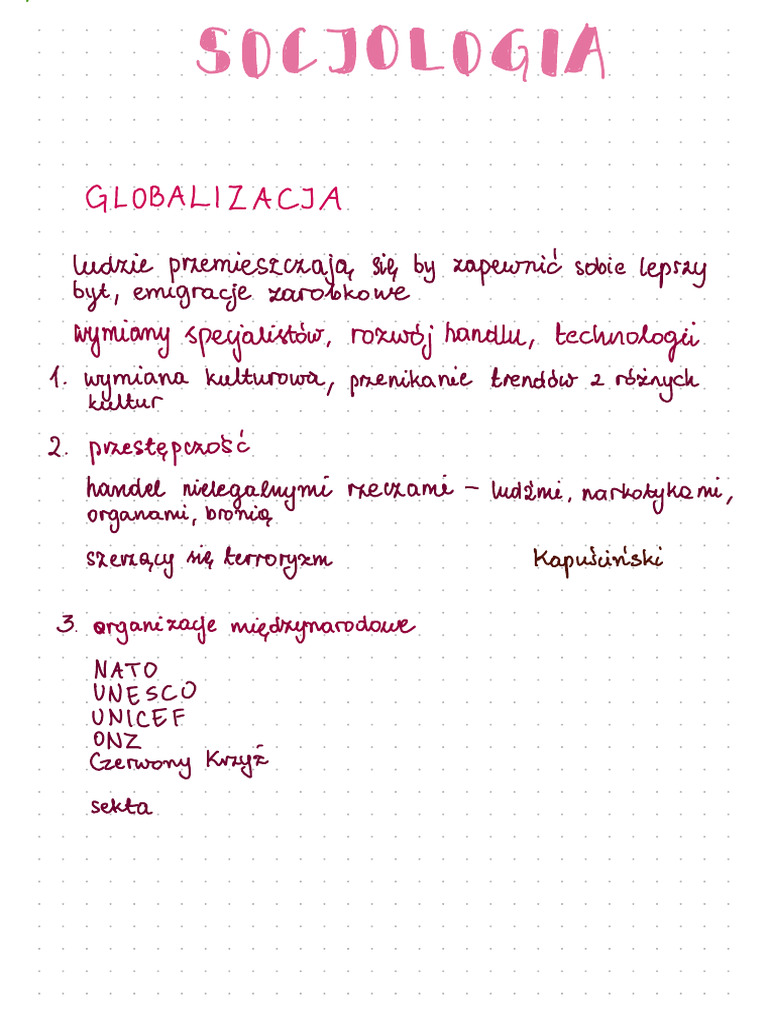 SOCJOLOGIA
GLOBALIZACJA
ludzie przemieszczają się by zapewnić sobie leprzy
byt, emigracje zarobkowe
wymiany specjalistów, rozwój handlu, technologii
1. wymiana kulturowa, przenikanie trendów z różnych
kultur
2. przestępczość
handel nielegalnymi rzeczami – ludźmi, narkotykami,
organami, bronią
szerzący się terroryzm
Kapuściński
3. organizacje międzynarodowe
NATO
UNESCO
UNICEF
ONZ
Czerwony Krzyż
sekta